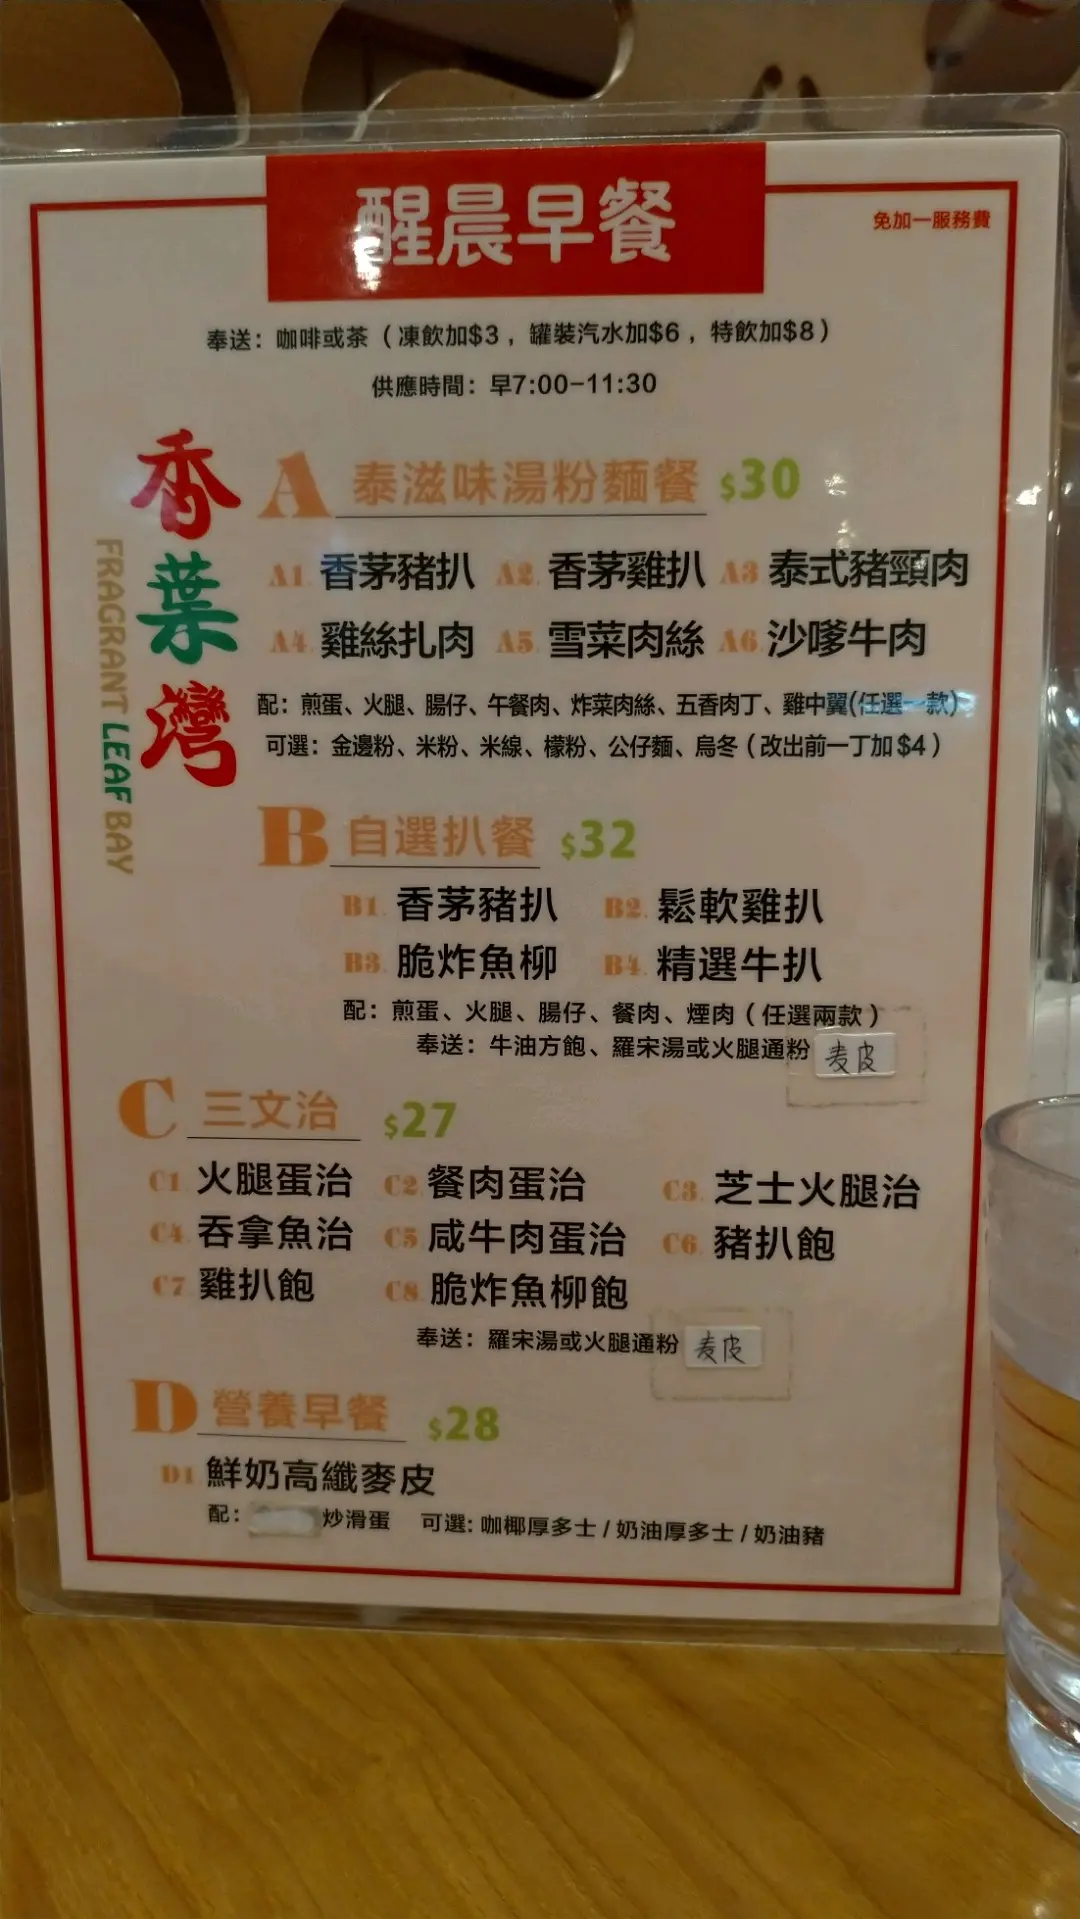 醒晨早餐
免加一服務費
奉送：咖啡或茶（凍飲加$3，罐裝汽水加$6，特飲加$8）
供應時間：早7:00-11:30
香葉灣
FRAGRANT LEAF BAY
A 泰滋味湯粉麵餐 $30
A1. 香茅豬扒 A2. 香茅雞扒 A3 泰式豬頸肉
A4. 雞絲扎肉 A5. 雪菜肉絲 A6. 沙嗲牛肉
配：煎蛋、火腿、腸仔、午餐肉、炸菜肉絲、五香肉丁、雞中翼(任選一款)
可選：金邊粉、米粉、米線、檬粉、公仔麵、烏冬（改出前一丁加$4）
B 自選扒餐 $32
B1. 香茅豬扒 B2. 鬆軟雞扒
B3. 脆炸魚柳 B4. 精選牛扒
配：煎蛋、火腿、腸仔、餐肉、煙肉（任選兩款）
奉送：牛油方飽、羅宋湯或火腿通粉 麦皮
C 三文治 $27
C1. 火腿蛋治 C2. 餐肉蛋治 C3. 芝士火腿治
C4. 吞拿魚治 C5 咸牛肉蛋治 C6. 豬扒飽
C7 雞扒飽 C8. 脆炸魚柳飽
奉送：羅宋湯或火腿通粉 麦皮
D 營養早餐 $28
D1. 鮮奶高纖麥皮
配： 炒滑蛋 可選：咖椰厚多士/奶油厚多士/奶油豬